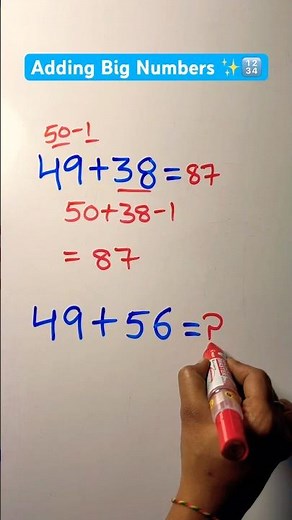 Adding Big Numbers ✨🔢
50-1
49+38=87
50+38-1
= 87
49+56=?